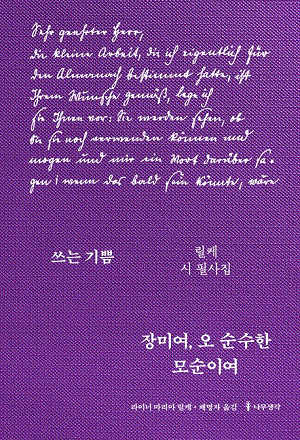 Sehr geehrter Herr,
die kleine Arbeit, die ich eigentlich für
den Almanach bestimmt hatte, ist
Ihrem Wunsche gemäß, lege ich
sie Ihnen vor: Sie werden sehen, ob
Sie sie noch verwenden können und
mögen und mir ein Wort darüber sa-
gen; wenn das bald sein könnte, wäre
쓰는 기쁨
릴케
시 필사집
장미여, 오 순수한
모순이여
라이너 마리아 릴케 · 배명자 옮김
나무생각